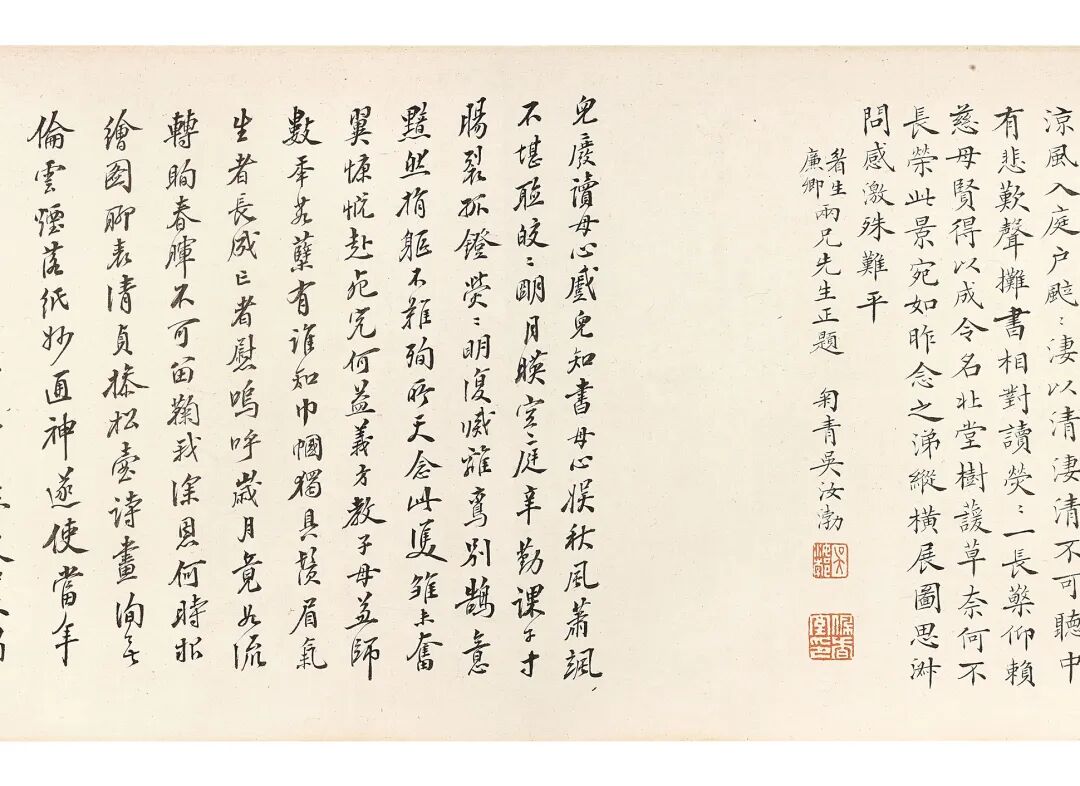 涼風入庭户颸〻淒以清淒清不可聽中
有悲歎聲攤書相對讀熒〻一長檠仰賴
慈母賢得以成令名北堂樹蘐草奈何不
長榮此景宛如昨念之涕縱橫展圖思淋
問感激殊難平
眷生
廉卿
兩兄先生正題 匊青吳汝渤
兒廢讀母心戲兒知書母心娱秋風蕭颯
不堪聆皎〻明月暎空庭辛勤課子寸
腸裂孤鐙熒〻明復滅離鸞别鵠意
黯然捐軀不難殉所天念此隻雏未奮
翼慷慨赴死究何益義方教子母益師
數年茗蘖有誰知巾幗獨具鬚眉氣
生者長成亡者慰嗚呼歲月竟如流
轉眴春暉不可留鞠我深恩何時報
繪圖聊表清貞操松壺詩畫洵
倫雲煙落紙妙通神遂使當年